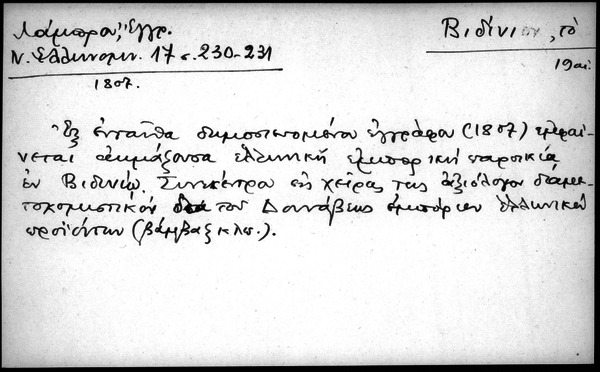 Λάμπρου, Ἔγγρ.
Ν. Ἑλληνομν. 17 σ. 230-231
1807.
Βιδίνιον, τὸ
19 αἰ.
Ἐξ ἐνταῦθα δημοσιευομένου ἐγγράφου (1807) ἐμφαί-
νεται ἀκμάζουσα ἑλληνικὴ ἐμπορικὴ παροικία
ἐν Βιδινίῳ. Συνεκέντρου εἰς χεῖρας της ἀξιόλογον διαμε-
τακομιστικὸν διὰ τοῦ Δουνάβεως ἐμπόριον ἑλληνικῶν
προϊόντων (βάμβαξ κλπ.).